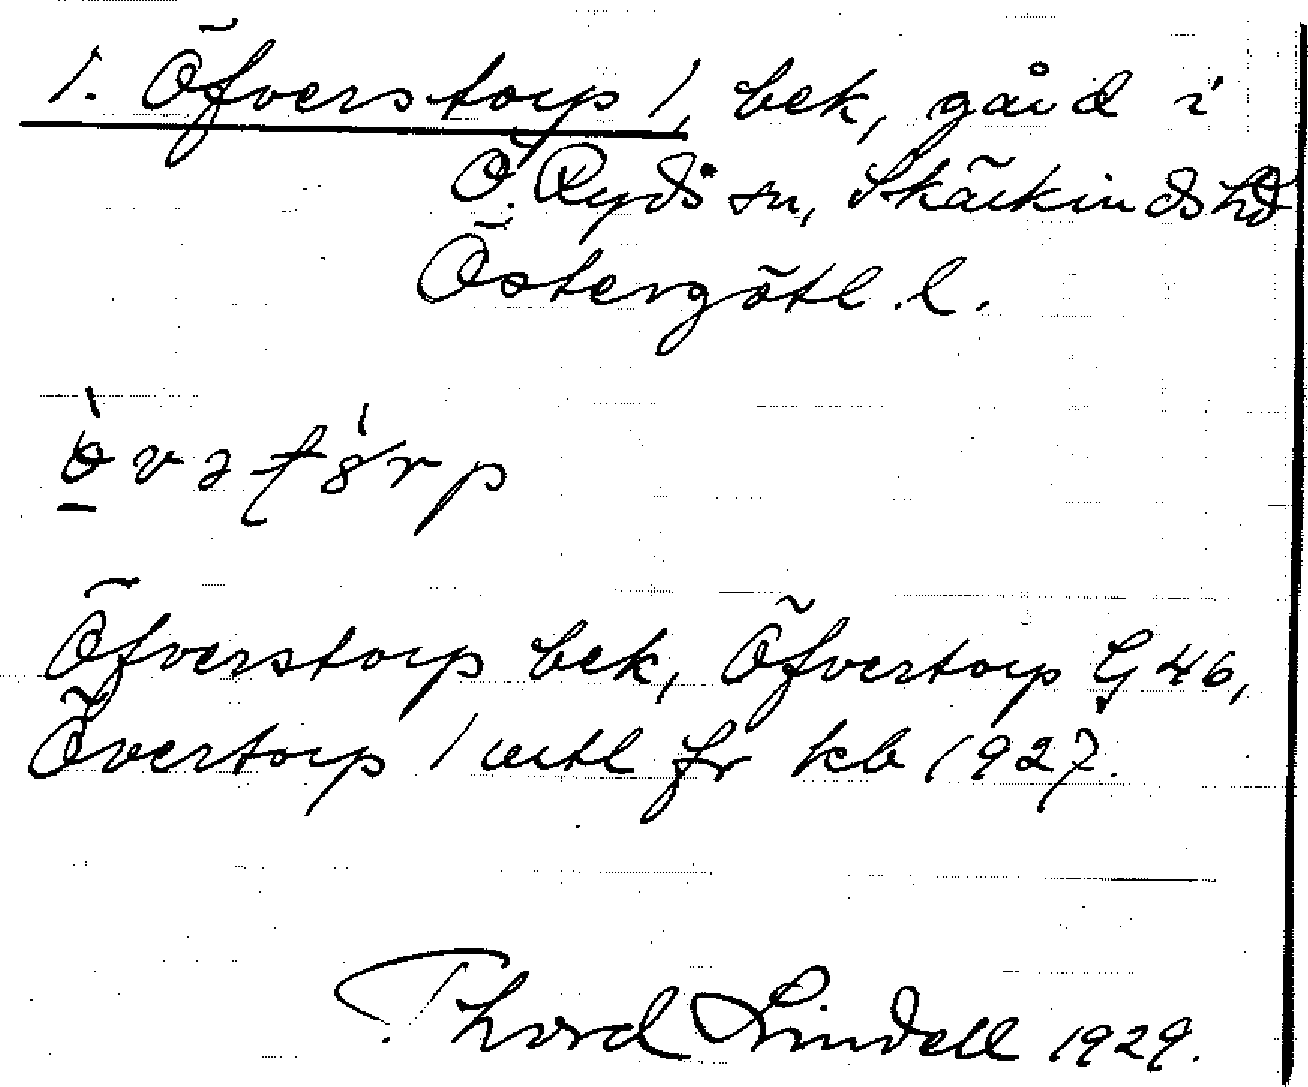 1. Öfverstorp 1, bek, gård i
Ö. Ryds sn, Skärkinds hd
Östergötl. l.
Öfverstorp bek, Öfvertorp G 46,
Övertorp 1 utl fr kb 1927.
Thord Lindell 1929.